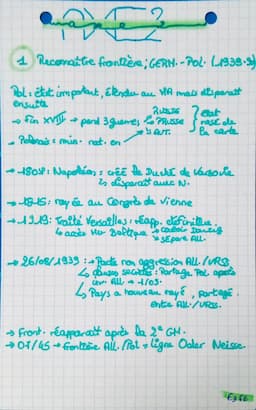 1 Reconnaître frontière ; GERM.- Pol. (1939-
Pol : état important, étendu au MA mais disparaît
ensuite
→ Fin XVIII → perd 3 guerres ↳ RUSSIE PRUSSE AUT. } état rasé de la carte
→ Polonais = min. nat. en
→ 1807 : Napoléon : crée le Duché de Varsovie
↳ disparaît avec N.
→ 1815 : rayée au Congrès de Vienne
→ 1919 : Traité Versailles : réapp. définitive
↳ accès Mer Baltique → couloir Dantzig
→ sépare All.
→ 26/08/1939 : → Pacte non agression All./URSS.
↳ clauses secrètes : Partage Pol après
inv. All. → 1/09.
↳ Pays à nouveau rayé, partagé
entre All./URSS.
→ Front. réapparaît après la 2e GM.
→ 07/45 → frontière All./Pol = ligne Oder Neisse.